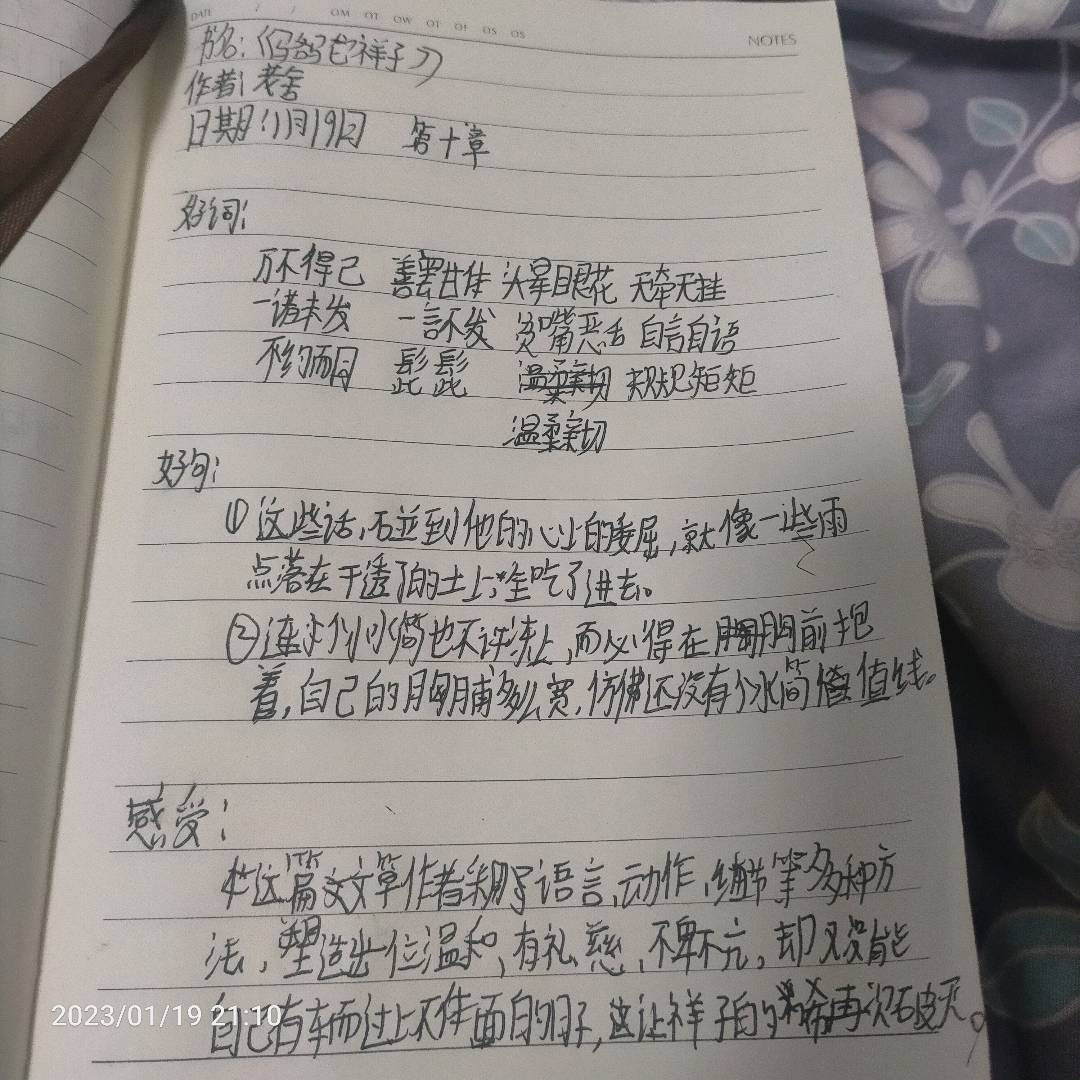 DATE / / OM OT OW OT OF OS OS
NOTES
书名:《骆驼祥子》
作者:老舍
日期:1月19日 第十章
好词:
万不得己 善罢甘休 头晕眼花 无牵无挂
一诺未发 一言不发 贫嘴恶舌 自言自语
不约而同 髭髭 规规矩矩
温柔亲切
好句:
①这些话,碰到他的心上的委屈,就像一些雨
点落在干透了的土上,全吃了进去。
②连个小水筒也不许冻上,而必得在胸前抱
着,自己的胸脯多么宽,仿佛还没有个水筒值钱。
感受:
这篇文章作者采用了语言、动作、细节等多种方
法,塑造出一位温和,有礼,慈,不卑不亢,却又没能
自己有车而过上不体面的日子,这让祥子的希再次破灭。
2023/01/19 21:10